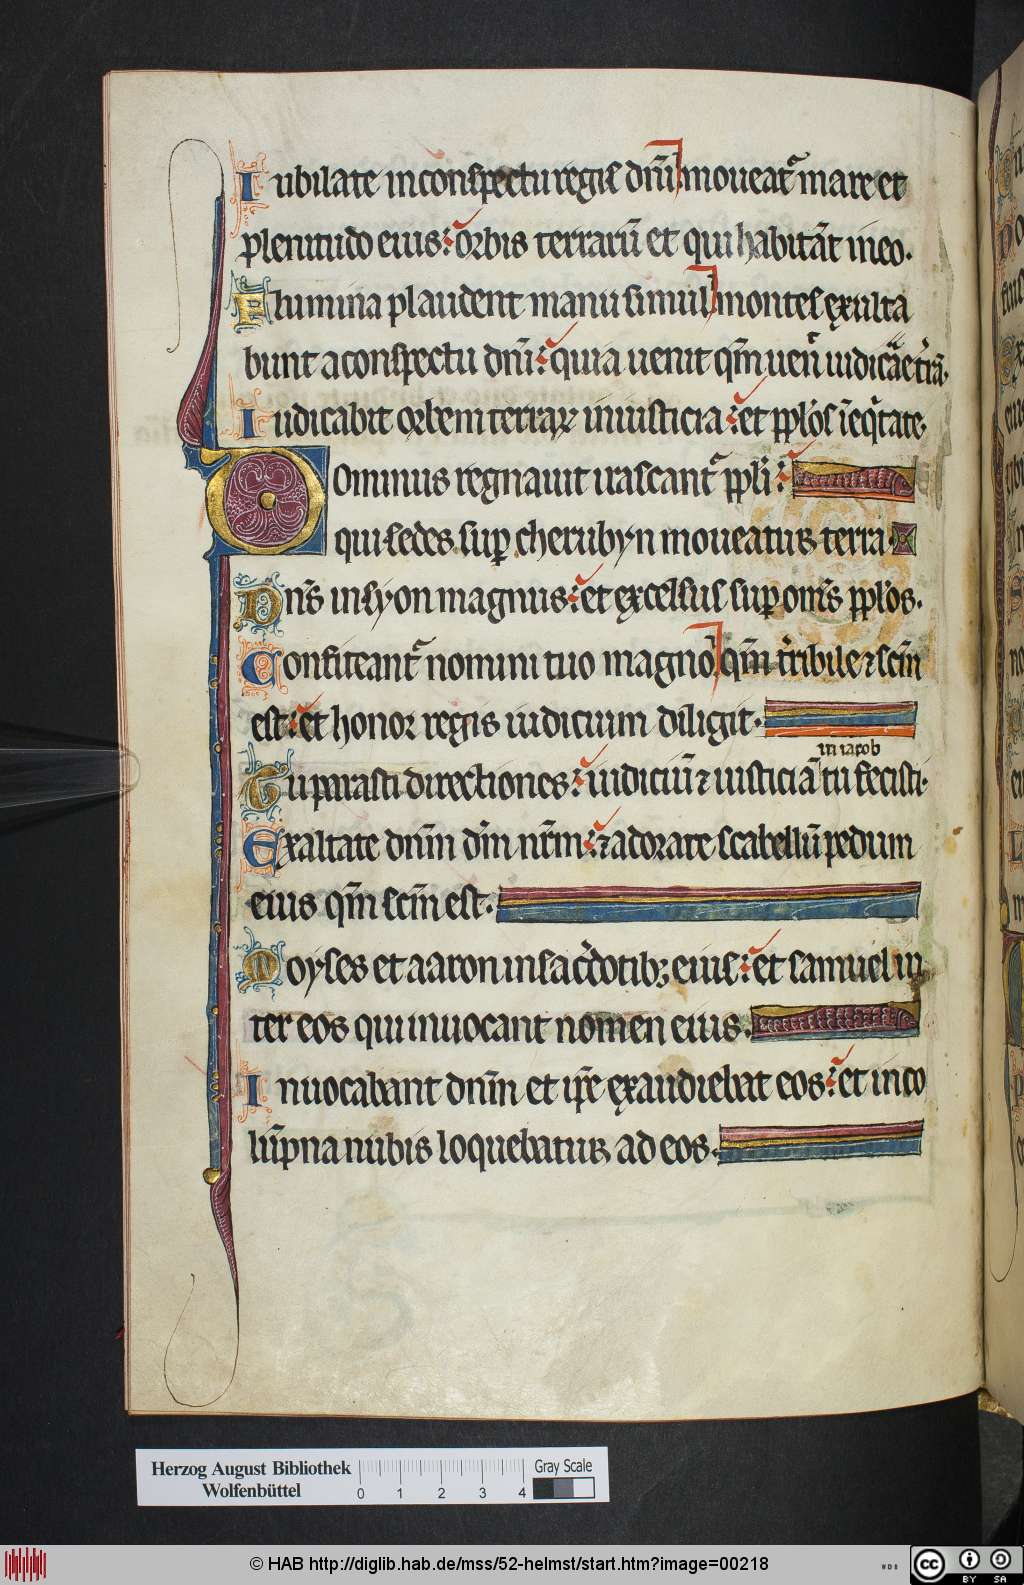 Iubilate in conspectu regis dn̄i moueat᷑ mare et
plenitudo eius: orbis terrarū et qui habitāt in eo.
Flumina plaudent manu simul montes exulta
bunt a conspectu dn̄i: quia uenit qm̄ uen̄
Iudicabit orbem terraꝝ in iusticia: et ppl̓os ī eq̓tate.
Dominus regnauit irascant᷑ ppl̓i:
qui sedes sup̱ cherubyn moueatur terra.
Dn̄s in syon magnus: et excelsus sup̱ om̄s ppl̓os.
Confiteant᷑ nomini tuo magno qm̄ t̓ribile ⁊ scm̄
est: et honor regis iudicium diligit.
in iacob
Tu parasti directiones: iudiciū ⁊ iusticiā tu fecisti.
Exaltate dn̄m dm̄ nr̄m: ⁊ adorate scabellū pedum
eius qm̄ scm̄ est.
Moyses et aaron in sac̓dotibꝫ eius: et samuel in
ter eos qui inuocant nomen eius.
Inuocabant dn̄m et ip̄e exaudiebat eos: et in co
lūpna nubis loquebatur ad eos.
Herzog August Bibliothek
Wolfenbüttel
0 1 2 3 4
Gray Scale
© HAB http://diglib.hab.de/mss/52-helmst/start.htm?image=00218
WDB
cc BY SA